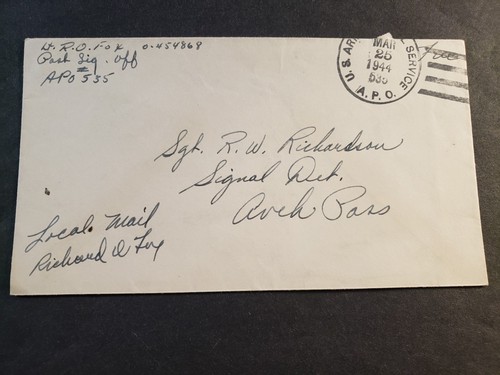 Lt. R.O. Fox 0-454869
Post Sig. Off
APO 535
U.S. ARMY SERVICE
MAR
25
1944
535
A.P.O.
Free
Sgt. R. W. Richardson
Signal Det.
Pass
Local Mail
Richard O Fox